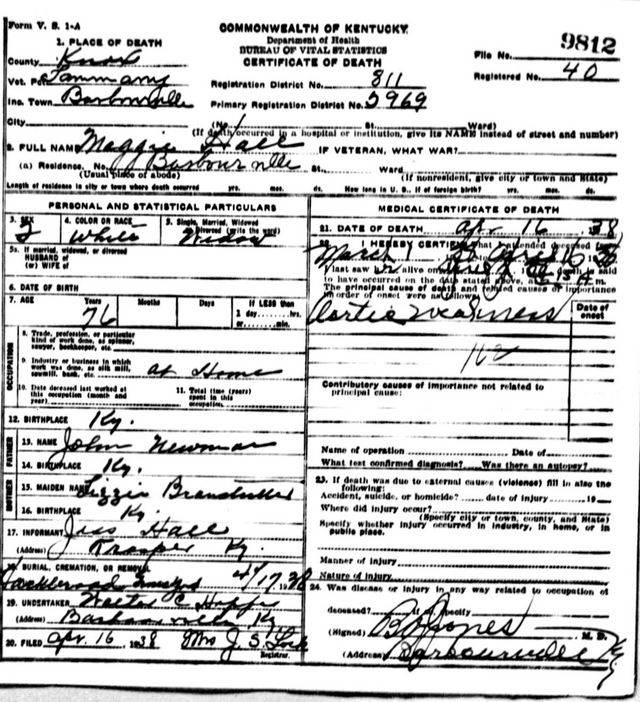 Form V. S. 1-A
COMMONWEALTH OF KENTUCKY
Department of Health
BUREAU OF VITAL STATISTICS
CERTIFICATE OF DEATH
File No. 9812
Registered No. 40
1. PLACE OF DEATH
County Knox
Vot. Pct. Tammany
Inc. Town Barbourville
City
Registration District No. 811
Primary Registration District No. 5969
(No. St. Ward)
(If death occurred in a hospital or institution, give its NAME instead of street and number)
2. FULL NAME Maggie Hall IF VETERAN, WHAT WAR?
(a) Residence. No. Barbourville St. Ward
(Usual place of abode) (If nonresident, give city or town and State)
Length of residence in city or town where death occurred yrs. mos. ds. How long in U. S., if of foreign birth? yrs. mos. ds.
PERSONAL AND STATISTICAL PARTICULARS
3. SEX F
4. COLOR OR RACE White
5. Single, Married, Widowed
Divorced (write the word) Widow
5a. If married, widowed, or divorced
HUSBAND of
(or) WIFE of
6. DATE OF BIRTH
7. AGE Years 76 Months Days If LESS than
1 day hrs.
or min.
OCCUPATION
8. Trade, profession, or particular
kind of work done, as spinner,
sawyer, bookkeeper, etc.
9. Industry or business in which
work was done, as silk mill,
sawmill, bank, etc. at Home
10. Date deceased last worked at
this occupation (month and
year)
11. Total time (years)
spent in this
occupation
12. BIRTHPLACE Ky.
FATHER
13. NAME John Newman
14. BIRTHPLACE Ky.
MOTHER
15. MAIDEN NAME Lizzie
16. BIRTHPLACE Ky.
17. INFORMANT Jess Hall
(Address) Trosper Ky.
18. BURIAL, CREMATION, OR REMOVAL
4/17 38
19. UNDERTAKER Walter C.
(Address) Barbourville Ky
20. FILED Apr. 16 1938 Mrs J. S.
Registrar.
MEDICAL CERTIFICATE OF DEATH
21. DATE OF DEATH Apr 16 38
22. I HEREBY CERTIFY, That I attended deceased from
March 1 38 to Apr 16 38
I last saw her alive on death is said
to have occurred on the date stated above, at m.
The principal cause of death and related causes of importance
in order of onset were as follows:
Date of
onset
Aortic Weakness
162
Contributory causes of importance not related to
principal cause:
Name of operation Date of
What test confirmed diagnosis? Was there an autopsy?
23. If death was due to external causes (violence) fill in also the
following:
Accident, suicide, or homicide? date of injury 19
Where did injury occur?
(Specify city or town, county, and State)
Specify whether injury occurred in industry, in home, or in
public place.
Manner of injury
Nature of injury
24. Was disease or injury in any way related to occupation of
deceased? If so specify
(Signed) B Jones M. D.
(Address) Barbourville Ky